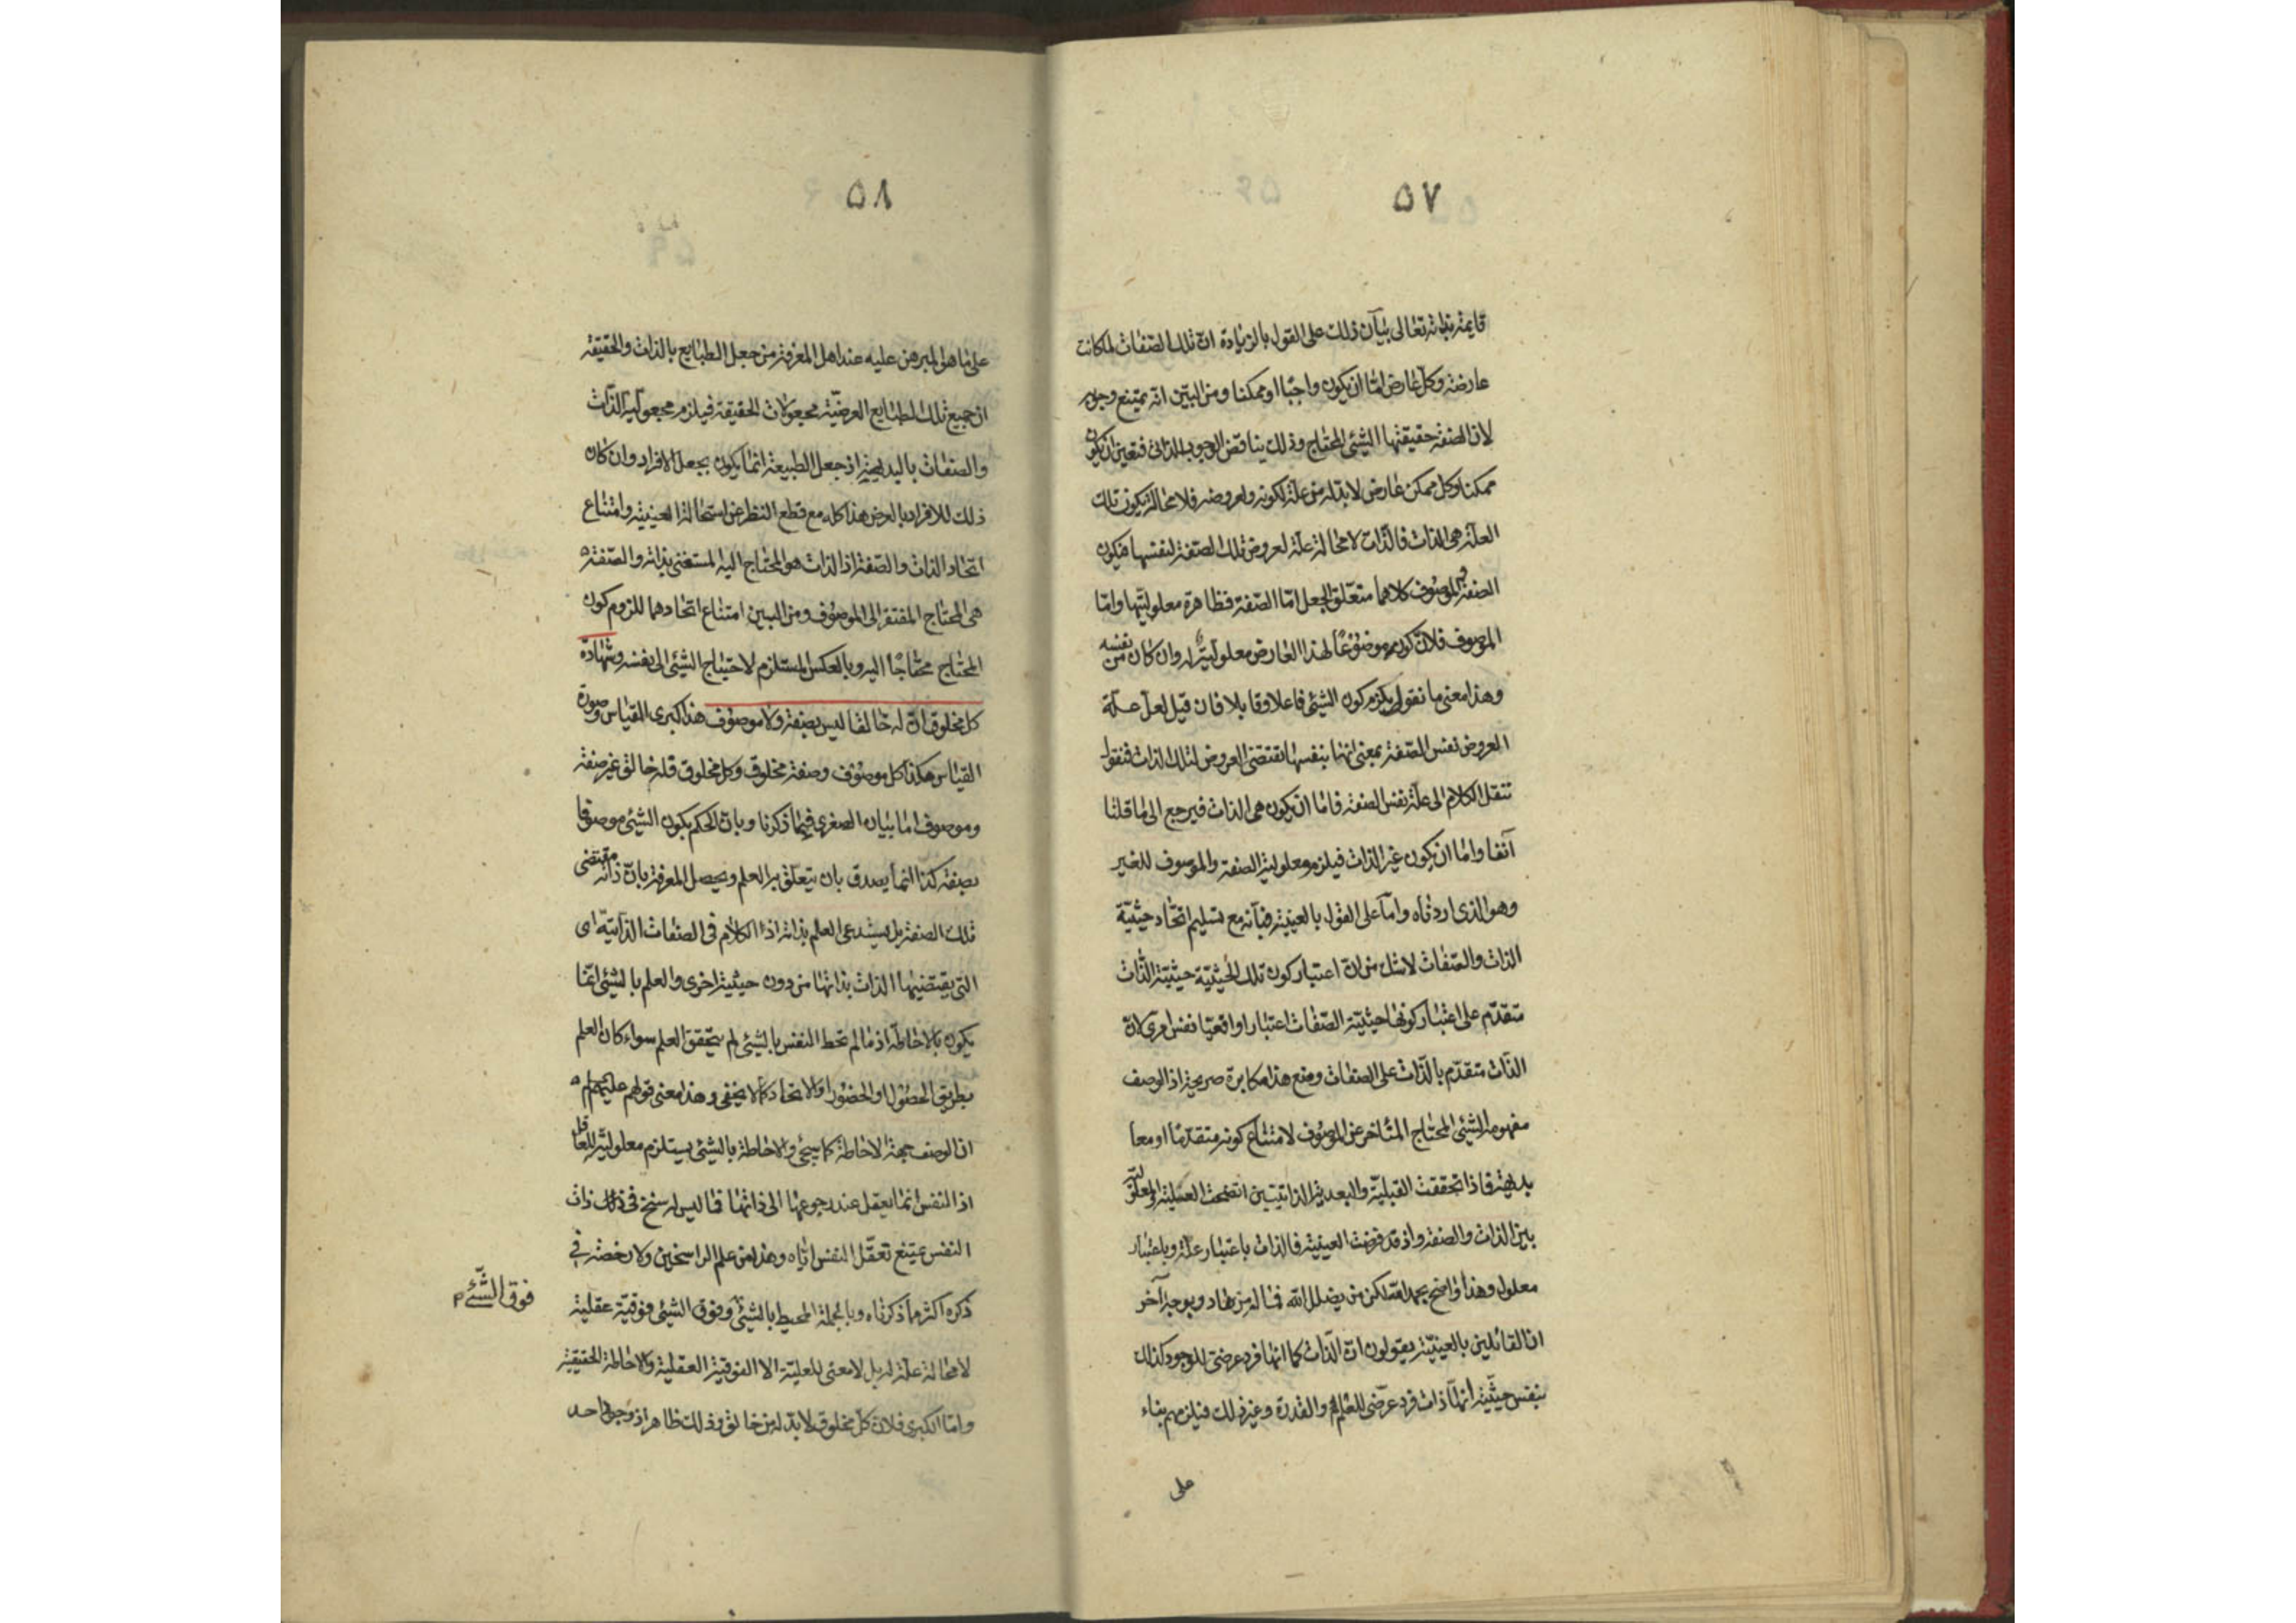 ۵۷
قايمة بذاته تعالى بيان ذلك على القول بالزيادة ان تلك الصفات لما كانت
عارضة وكل عارض اما ان يكون واجبا او ممكنا ومن البيّن انه يمتنع وجوبه
لان الصفة حقيقتها الشيئ المحتاج وذلك يناقض الوجوب الذاتى فتعين ان يكون
ممكنا وكل ممكن عارض لابد له من علّة لكونه ولعروضه فلا محالة يكون تلك
العلّة هى الذات فالذّات لا محالة علّة لعروض تلك الصفة لنفسها فيكون
الصفة والموصوف كلاهما متعلّق الجعل امّا الصّفة فظاهرة معلوليّتها وامّا
الموصوف فلانّ كونه موضوعًا لهذا العارض معلوليّة له وان كان من نفسه
وهذا معنى ما نقول يلزم كون الشيئ فاعلا وقابلا فان قيل لعل علّة
العروض نفس الصّفة بمعنى انها بنفسها تقتضى العروض لتلك الذات فنقول
ننقل الكلام الى علّة نفس الصفة فامّا ان يكون هى الذات فيرجع الى ما قلنا
آنفا وامّا ان يكون غير الذات فيلزم معلولية الصفة والموصوف للغير
وهو الذى اردناه وامّا على القول بالعينية فبأنّه مع تسليم اتّحاد حيثيّة
الذات والصّفات لاشك من انّ اعتبار كون تلك الحيثيّة حيثيّة الذّات
متقدّم على اعتبار كونها حيثيّة الصّفات اعتبارا واقعيّا نفس امرى لانّ
الذّات متقدّم بالذّات على الصفات ومنع هذا مكابرة صريحة اذ الوصف
مفهومه الشيئ المحتاج المتأخر عن الموصوف لامتناع كونه متقدّمًا او معا
بديهة فاذا تحققت القبليّة والبعدية الذاتيّتين اتضحت العليّة والمعلولية
بين الذات والصفة واذ قد فرضت العينية فالذات باعتبار علّة وباعتبار
معلول وهذا واضح بحمد الله لكن من يضلل الله فما له من هاد وبوجه آخر
ان القائلين بالعينيّة يقولون انّ الذّات كما انها فرد عرضى للوجود كذلك
بنفس حيثيّة انها ذات فرد عرضى للعلم والقدرة وغير ذلك فيلزمهم بناء
على
۵۸
على ما هو المبرهن عليه عند اهل المعرفة من جعل الطبايع بالذات والحقيقة
ان جميع تلك الطبايع العرضيّة مجعولات الحقيقة فيلزم مجعوليّة الذّات
والصفات بالبديهية اذ جعل الطبيعة انّما يكون بجعل الافراد وان كان
ذلك للافراد بالعرض هذا كله مع قطع النظر عن استحالة العينية وامتناع
اتحاد الذات والصّفة اذ الذات هو المحتاج اليه المستغنى بذاته والصّفة
هى المحتاج المفتقر الى الموصوف ومن البين امتناع اتحادهما للزوم كون
المحتاج محتاجًا اليه وبالعكس المستلزم لاحتياج الشيئ الى نفسه وشهادة
كل مخلوق انّ له خالقا ليس بصفة ولا موصوف هذا كبرى القياس وصورة
القياس هكذا كل موصوف وصفة مخلوق وكل مخلوق فله خالق غير صفة
وموصوف اما بيان الصغرى فيما ذكرنا وبان الحكم بكون الشيئ موصوفا
بصفة كذا انما يصدق بان يتعلّق به العلم ويحصل المعرفة بانّ ذاته مقتضى
تلك الصفة بل يستدعى العلم بذاته اذ الكلام فى الصفات الذاتيّة اى
التى يقتضيها الذات بذاتها من دون حيثية اخرى والعلم بالشيئ انّما
يكون بالاحاطة اذ ما لم تحط النفس بالشيئ لم يتحقق العلم سواء كان العلم
بطريق الحصول او الحضور او الاتحاد كما لا يخفى وهذا معنى قولهم عليهم السلام
ان الوصف جهة الاحاطة كما سيجئ والاحاطة بالشيئ يستلزم معلوليّة للعاقل
اذ النفس انما يعقل عند رجوعها الى ذاتها فما ليس له سنخ فى ذلك ذات
النفس يمتنع تعقّل النفس ايّاه وهذا من علم الراسخين ولا رخصة فى
ذكره اكثر مما ذكرناه وبالجملة المحيط بالشيئ وفوق الشيئ فوقيّة عقلية
فوق الشّئ م
لا محالة علّة له بل لا معنى للعليّة الا الفوقية العقلية والاحاطة الحقيقية
وامّا الكبرى فلان كل مخلوق لابدّ له من خالق وذلك ظاهر اذ وجود احد